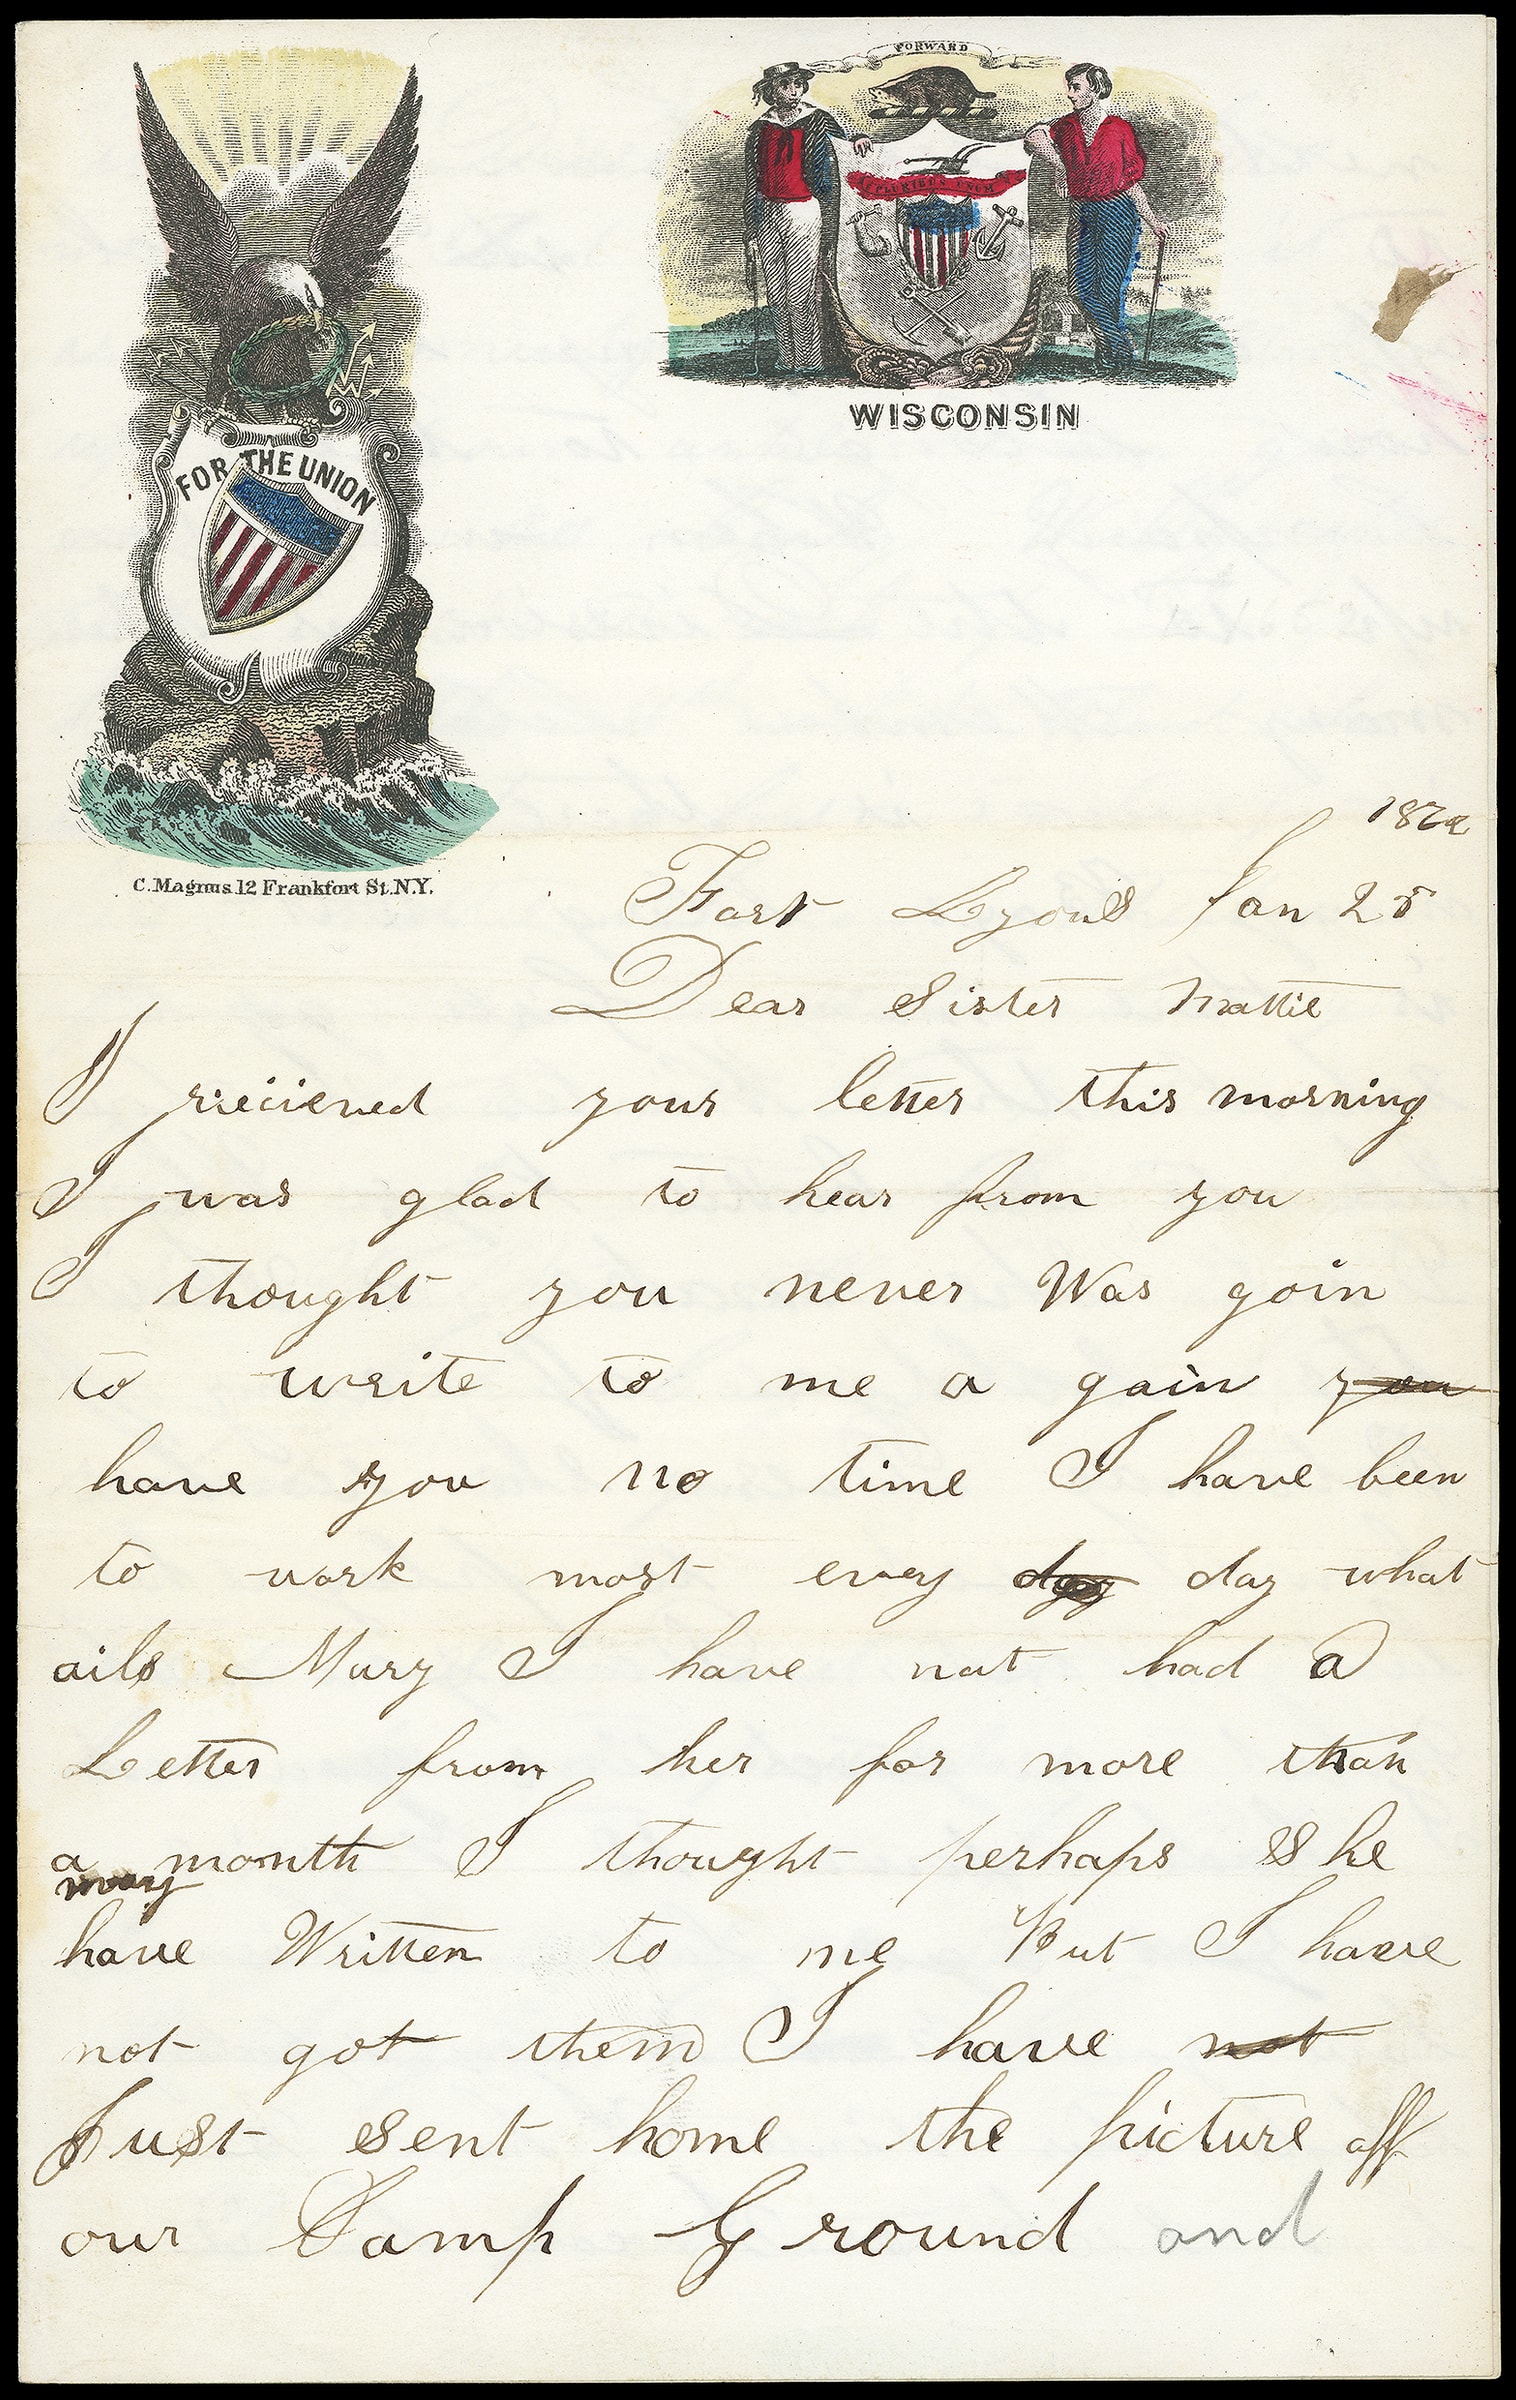 FORWARD
E PLURIBUS UNUM
WISCONSIN
FOR THE UNION
C. Magnus. 12 Frankfort St. N.Y.
Fort Lyons Jan 25
Dear Sister Mattie
I rieciened your letter this morning
I was glad to hear from you
I thought you never Was goin
to write to me a gain you
have you no time I have been
to work most evey day what
ails Mary I have not had a
Letter from her for more than
a month I thought perhaps She
may
have Written to me But I have
not got them I have not
Just sent home the picture off
our Camp Ground and